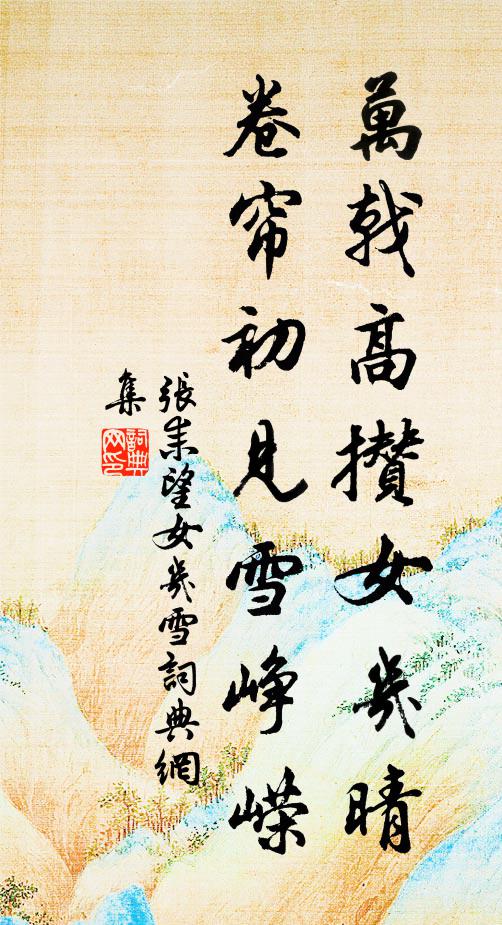 萬戟高攢女几晴
卷帘初見雪峥嶸
張耒望女几雪詞典網
集
詞典
网印